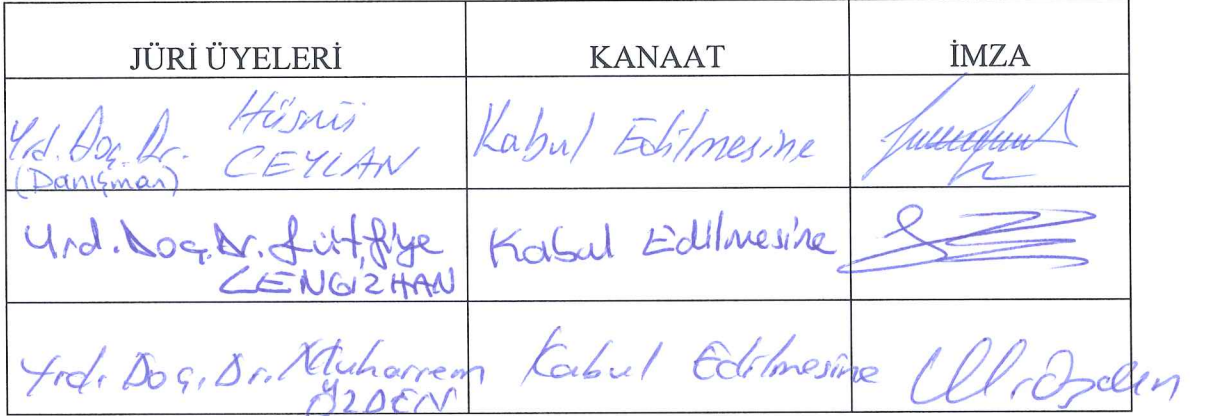 JÜRİ ÜYELERİ KANAAT İMZA
Yrd. Doç. Dr. Hüsnü
(Danışman) CEYLAN
Kabul Edilmesine
Yrd. Doç. Dr. Lütfiye
CENGİZHAN
Kabul Edilmesine
Yrd. Doç. Dr. Muharrem
ÖZDEN
Kabul Edilmesine
M. Özden